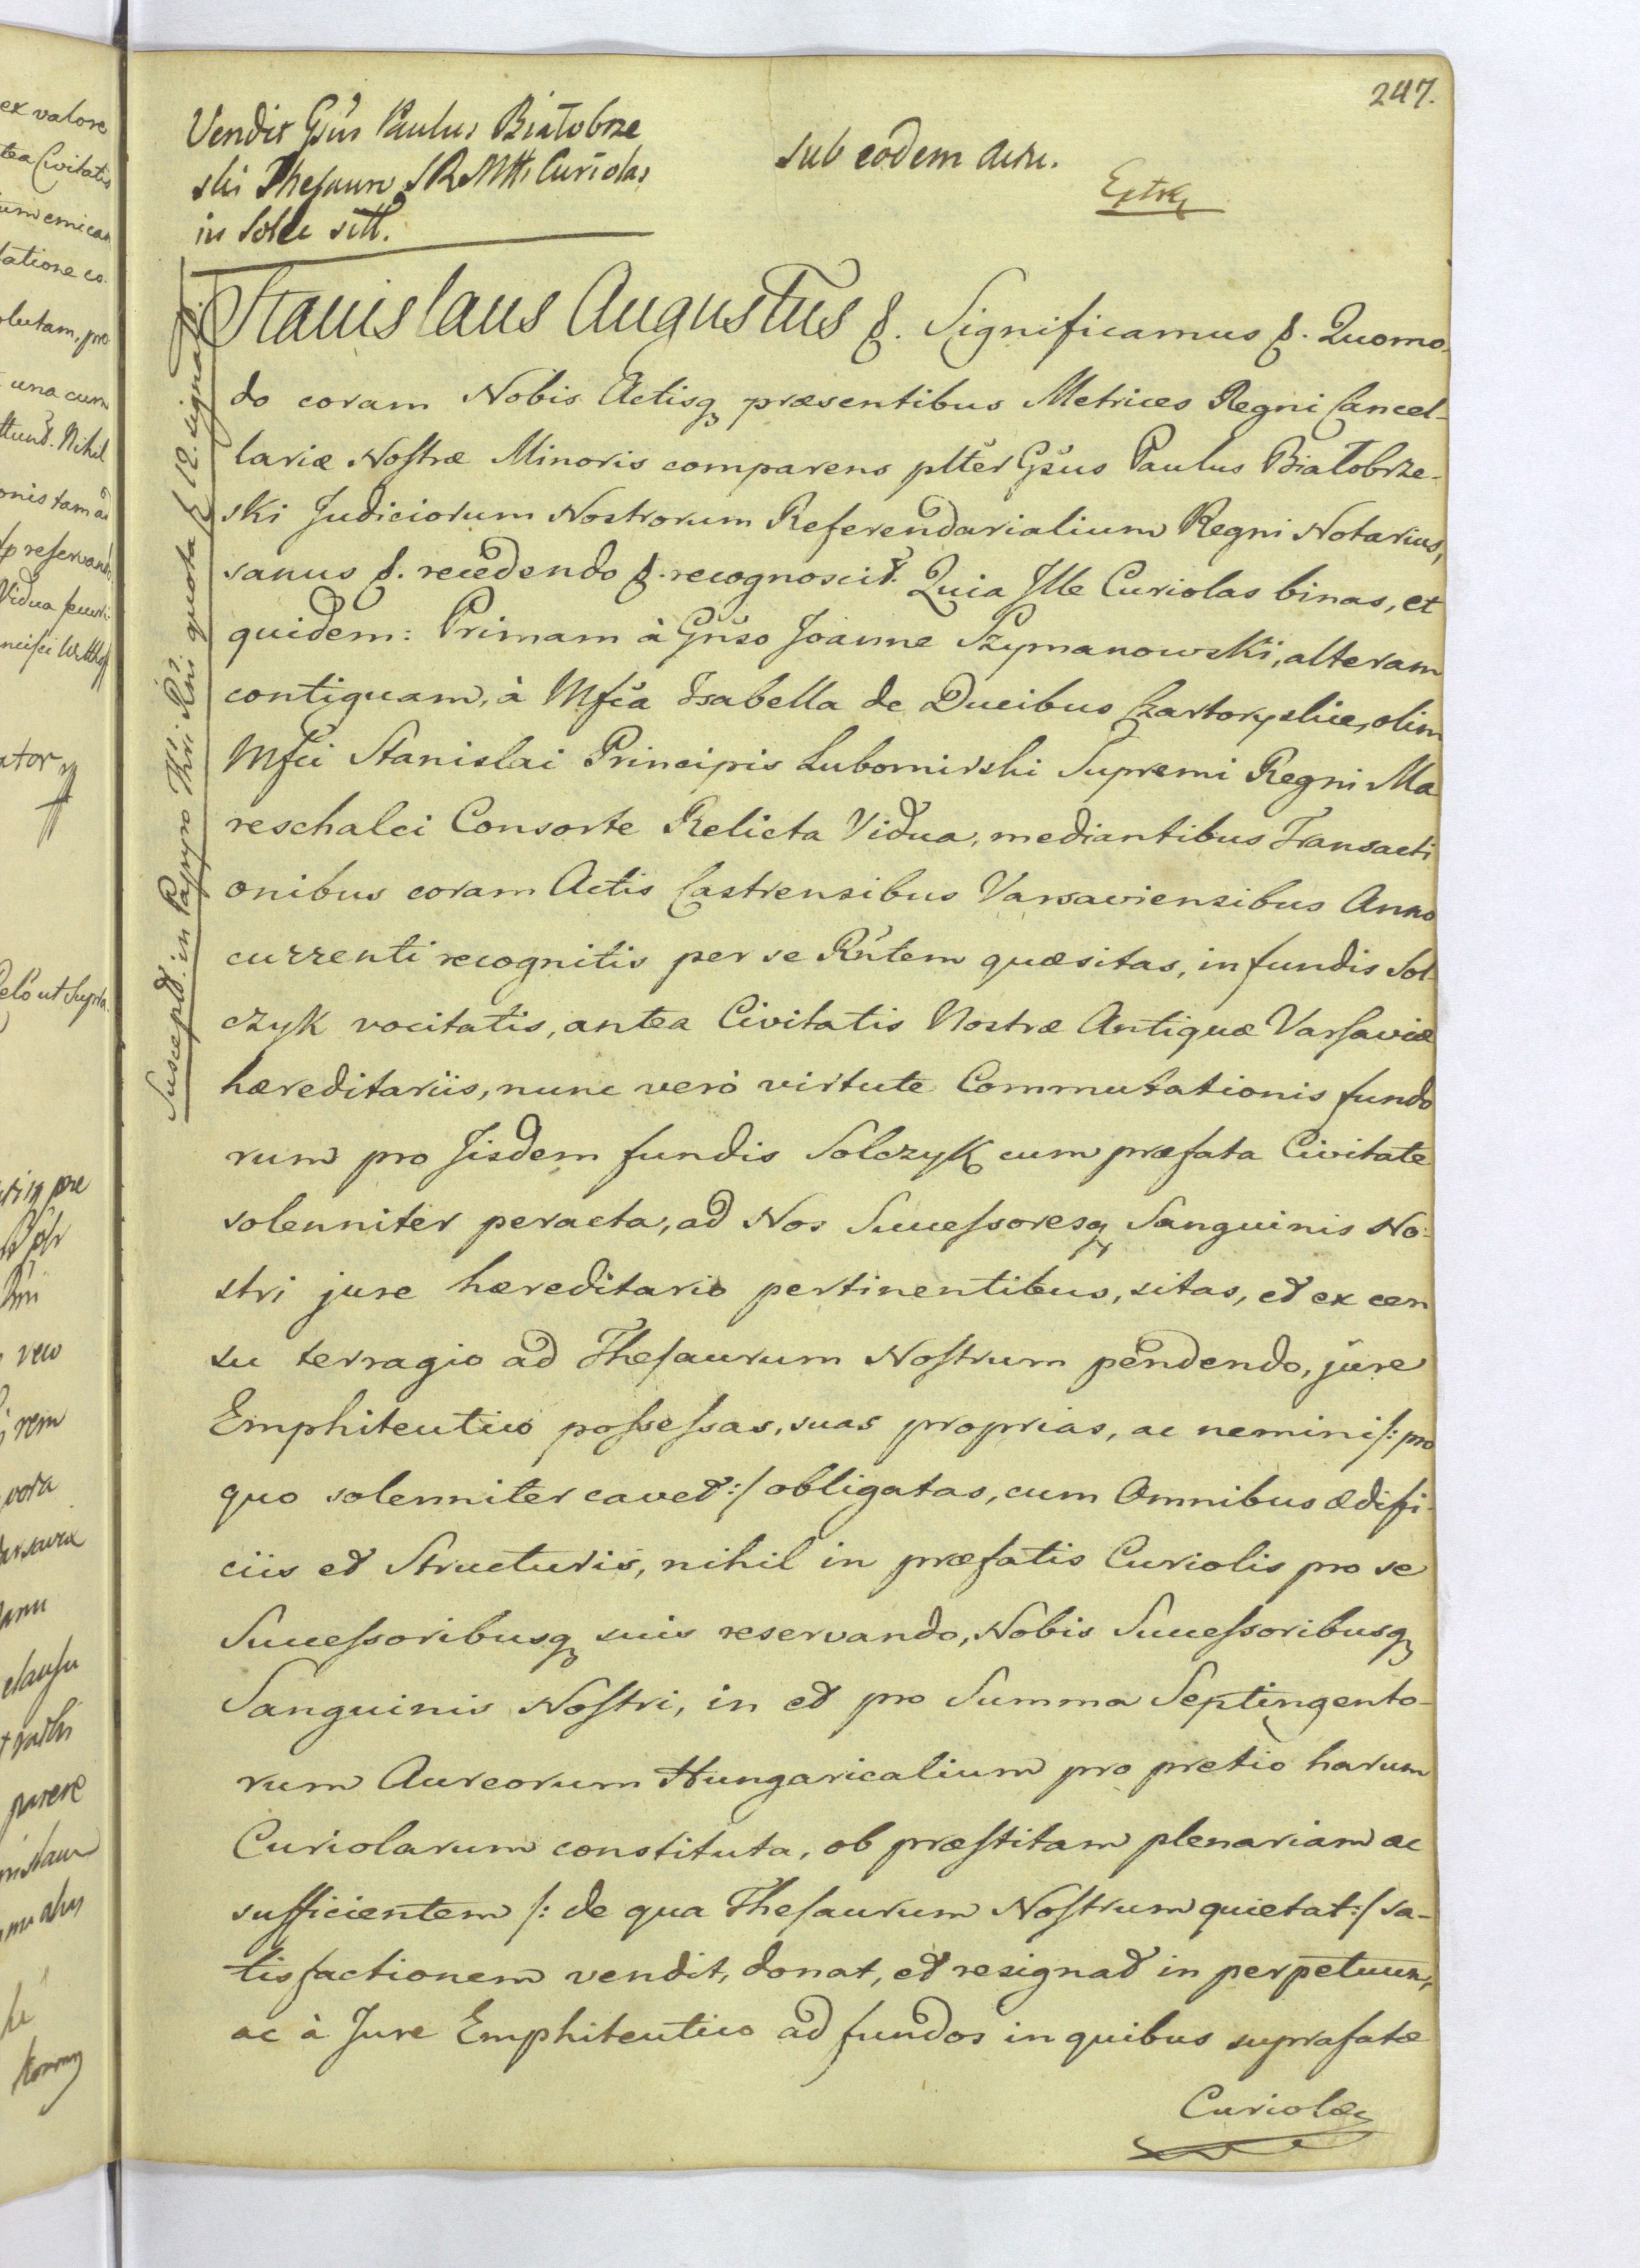 247.
Vendit Gsus Paulus Białobrze
ski Thesauro SRMtti Curiolas
in Solec sitt.
sub eodem actu.
Extr
Stanislaus Augustus &. Significamus &. Quomo-
do coram Nobis Actisq præsentibus Metrices Regni Cancel-
lariæ Nostræ Minoris comparens plter Gsus Paulus Białobrze-
ski Judiciorum Nostrorum Referendarialium Regni Notarius,
sanus &. recedendo &. recognoscit. Quia Ille Curiolas binas, et
quidem: Primam à Gnso Joanne Szymanowski, alteram
contiguam, à Mfca Isabella de Ducibus Czartoryskie, olim
Mfci Stanislai Principis Lubomirski Supremi Regni Ma
reschalci Consorte Relicta Vidua, mediantibus Transacti
onibus coram Actis Castrensibus Varsaviensibus Anno
currenti recognitis per se Rntem quæsitas, in fundis Sol-
czyk vocitatis, antea Civitatis Nostræ Antiquæ Varsaviæ
hæreditariis, nunc verò virtute Commutationis fundo
rum pro Iisdem fundis Solczyk cum præfata Civitate
solenniter peracta, ad Nos Successoresq Sanguinis No-
stri jure hæreditario pertinentibus, sitas, et ex cen
su terragio ad Thesaurum Nostrum pendendo, jure
Emphiteutico possessas, suas proprias, ac nemini /: pro
quo solenniter cavet :/ obligatas, cum Omnibus ædifi-
ciis et Structuris, nihil in præfatis Curiolis pro se
Successoribusq suis reservando, Nobis Successoribusq
Sanguinis Nostri, in et pro Summa Septingento-
rum Aureorum Hungaricalium pro pretio harum
Curiolarum constituta, ob præstitam plenariam ac
sufficientem /: de qua Thesaurum Nostrum quietat :/ sa-
tisfactionem vendit, donat, et resignat in perpetuum,
ac à Jure Emphiteutico ad fundos in quibus suprafatæ
Curiolæ
Suscept. in Papyro Thri Rni quota f 12. signato.
ex valore
tea Civitatis
um emican
latione co-
olutam, pro
una cum
Nihil
onis tam
reservan
Vidua
ator
ut supra
pre
vew
rem
vora
clausu
parere